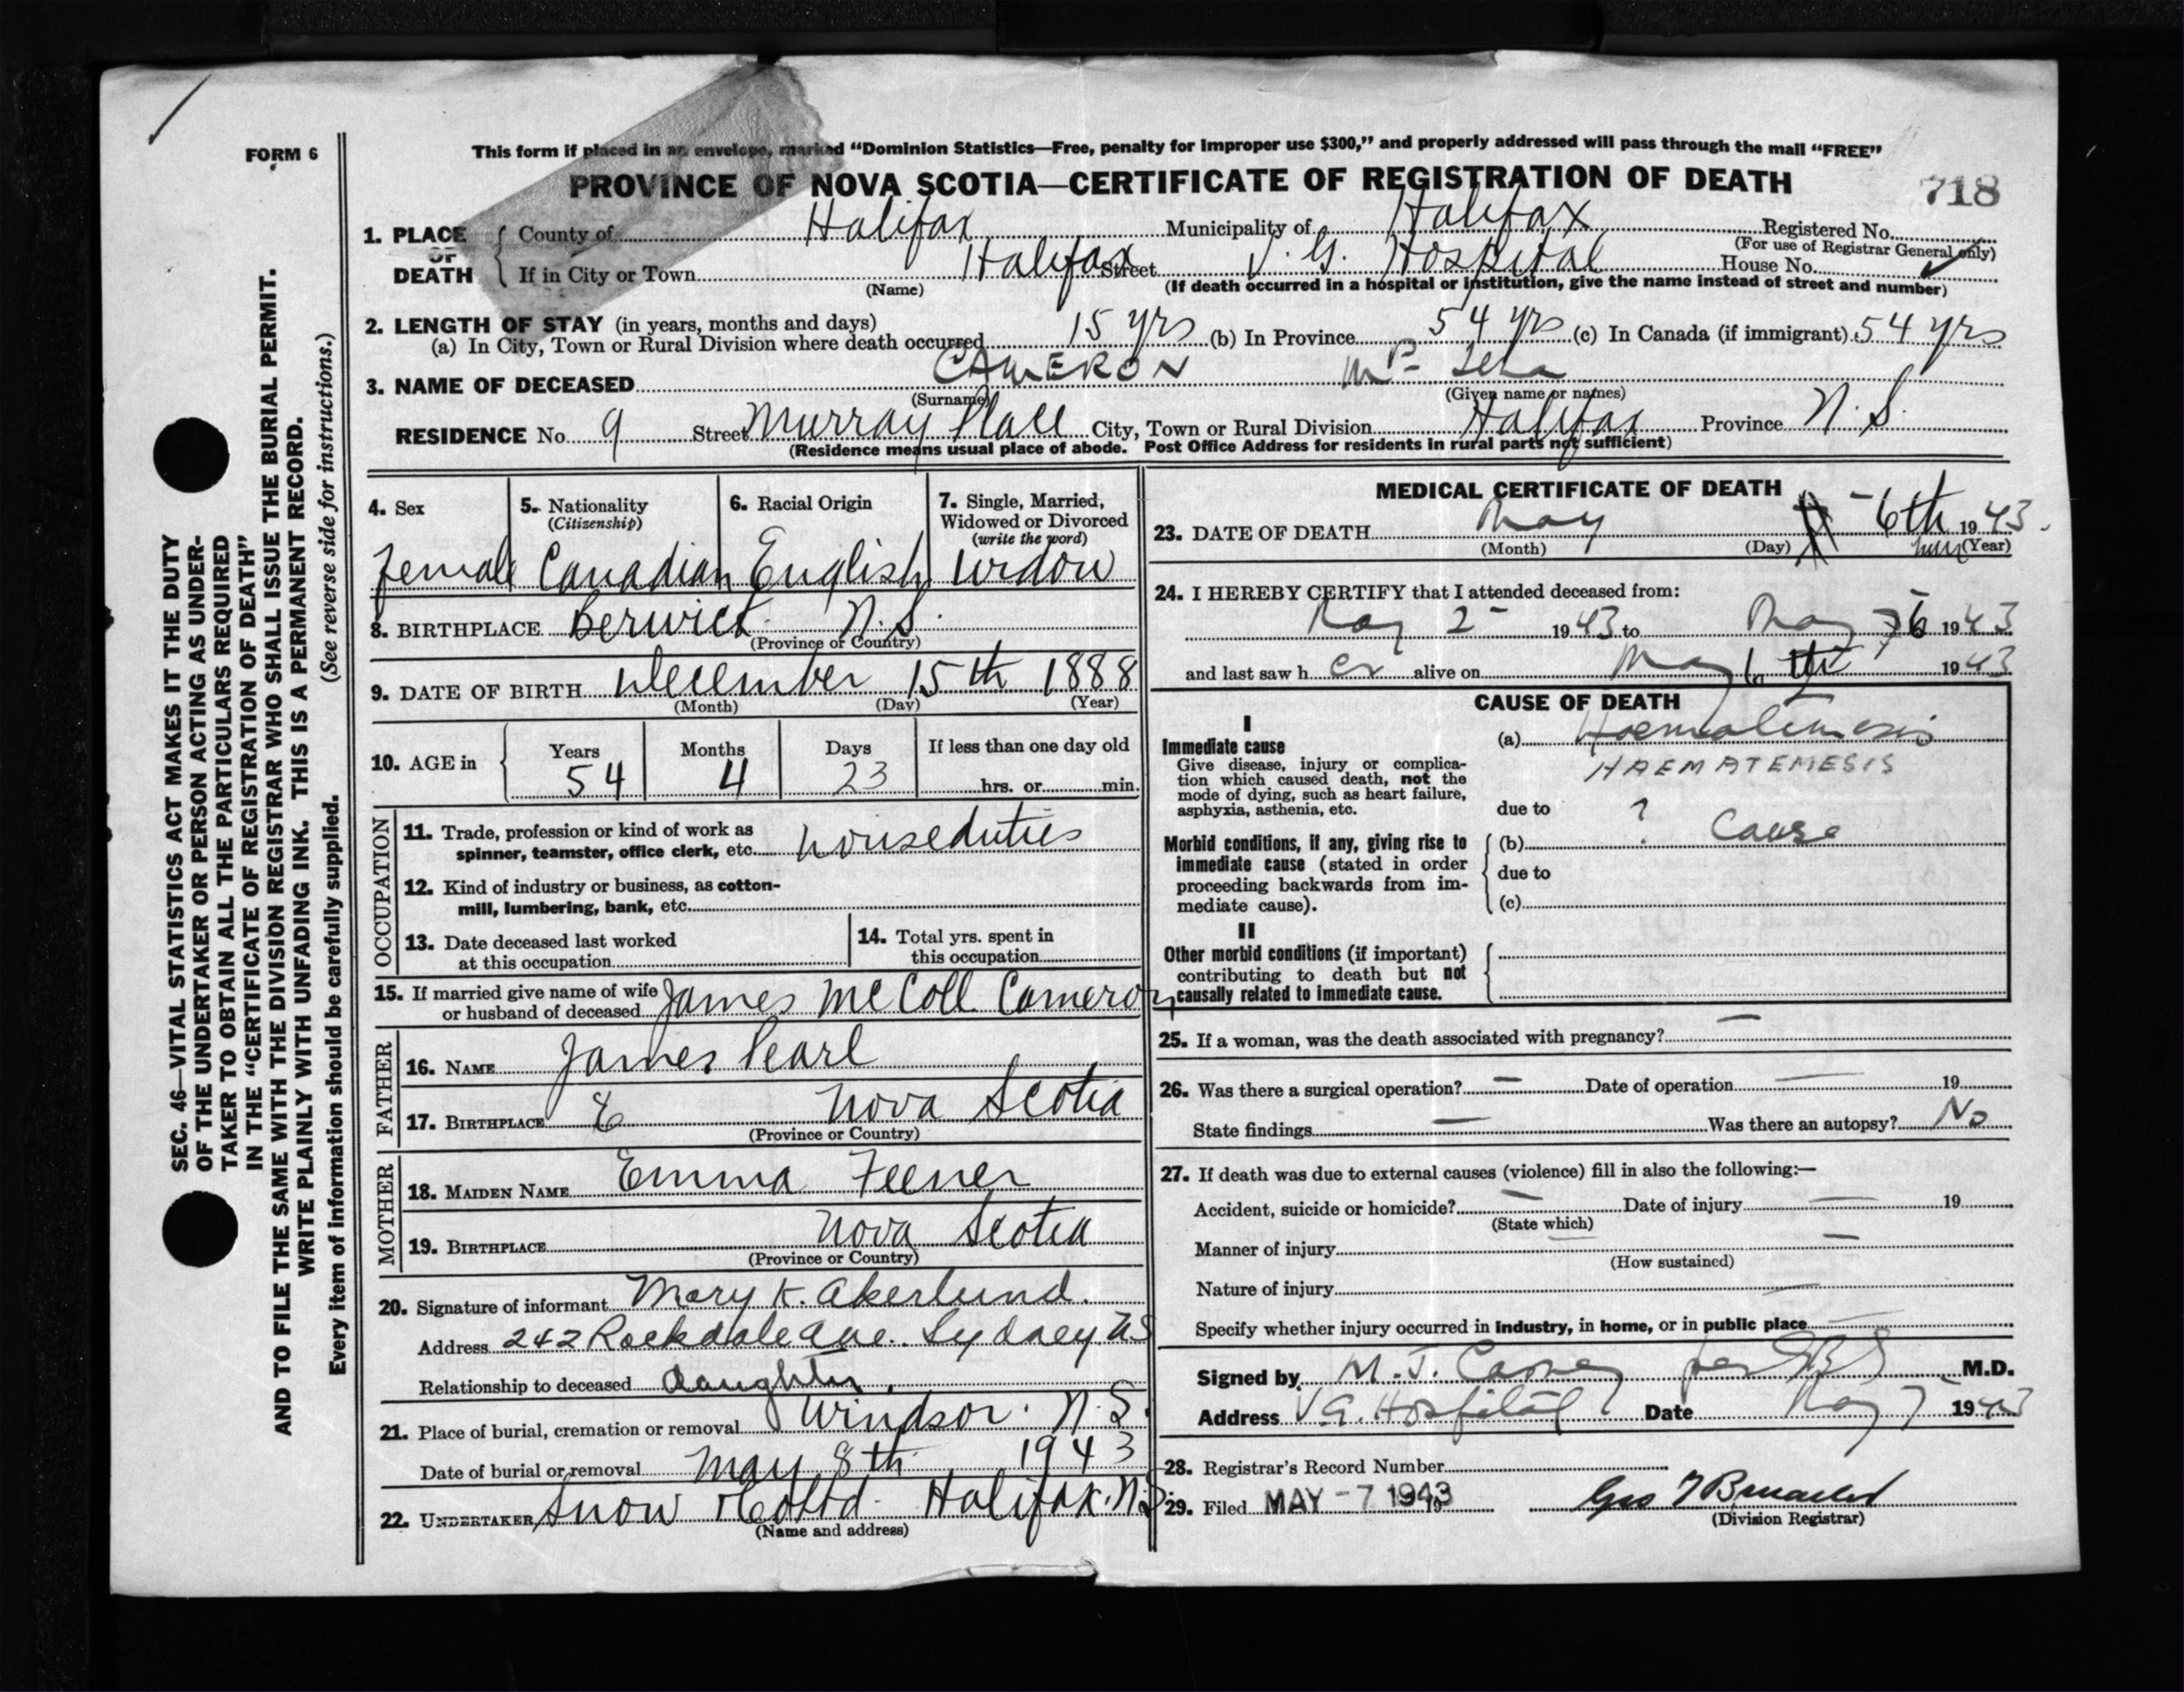 FORM 6
This form if placed in an envelope, marked "Dominion Statistics—Free, penalty for improper use $300," and properly addressed will pass through the mail "FREE"
PROVINCE OF NOVA SCOTIA—CERTIFICATE OF REGISTRATION OF DEATH
718
1. PLACE OF DEATH
County of Halifax Municipality of Halifax Registered No.
(For use of Registrar General only)
If in City or Town Halifax Street V. G. Hospital House No.
(Name) (If death occurred in a hospital or institution, give the name instead of street and number)
2. LENGTH OF STAY (in years, months and days)
(a) In City, Town or Rural Division where death occurred 15 yrs (b) In Province 54 yrs (c) In Canada (if immigrant) 54 yrs
3. NAME OF DECEASED CAMERON Mrs Lena
(Surname) (Given name or names)
RESIDENCE No. 9 Street Murray Place City, Town or Rural Division Halifax Province N. S.
(Residence means usual place of abode. Post Office Address for residents in rural parts not sufficient)
4. Sex
Female
5. Nationality
(Citizenship)
Canadian
6. Racial Origin
English
7. Single, Married,
Widowed or Divorced
(write the word)
Widow
8. BIRTHPLACE Berwick N.S.
(Province or Country)
9. DATE OF BIRTH December 15th 1888
(Month) (Day) (Year)
10. AGE in
Years Months Days If less than one day old
54 4 23 hrs. or min.
OCCUPATION
11. Trade, profession or kind of work as
spinner, teamster, office clerk, etc. houseduties
12. Kind of industry or business, as cotton-
mill, lumbering, bank, etc.
13. Date deceased last worked
at this occupation
14. Total yrs. spent in
this occupation
15. If married give name of wife
or husband of deceased James McColl Cameron
FATHER
16. NAME James Pearl
17. BIRTHPLACE Nova Scotia
(Province or Country)
MOTHER
18. MAIDEN NAME Emma Feener
19. BIRTHPLACE Nova Scotia
(Province or Country)
20. Signature of informant Mary K. Akerlund.
Address 242 Rockdale Ave. Sydney NS
Relationship to deceased daughter.
21. Place of burial, cremation or removal Windsor. N.S.
Date of burial or removal May 8th 1943
22. UNDERTAKER Snow & Co Ltd. Halifax. N.S.
(Name and address)
MEDICAL CERTIFICATE OF DEATH
23. DATE OF DEATH May 6th 1943.
(Month) (Day) (Year)
24. I HEREBY CERTIFY that I attended deceased from:
May 2 1943 to May 6 1943
and last saw her alive on May 6 1943
CAUSE OF DEATH
I
Immediate cause
Give disease, injury or complica-
tion which caused death, not the
mode of dying, such as heart failure,
asphyxia, asthenia, etc.
(a) Haematemesis
HAEMATEMESIS
due to ?
Morbid conditions, if any, giving rise to
immediate cause (stated in order
proceeding backwards from im-
mediate cause).
(b) Cause
due to
(c)
II
Other morbid conditions (if important)
contributing to death but not
causally related to immediate cause.
25. If a woman, was the death associated with pregnancy? —
26. Was there a surgical operation? — Date of operation — 19
State findings — Was there an autopsy? No
27. If death was due to external causes (violence) fill in also the following:—
Accident, suicide or homicide? — Date of injury — 19
(State which)
Manner of injury —
(How sustained)
Nature of injury —
Specify whether injury occurred in industry, in home, or in public place —
Signed by M. J. Carney per M.D.
Address V G. Hospital Date May 7 1943
28. Registrar's Record Number
29. Filed MAY - 7 1943
(Division Registrar)
SEC. 46—VITAL STATISTICS ACT MAKES IT THE DUTY
OF THE UNDERTAKER OR PERSON ACTING AS UNDER-
TAKER TO OBTAIN ALL THE PARTICULARS REQUIRED
IN THE "CERTIFICATE OF REGISTRATION OF DEATH"
AND TO FILE THE SAME WITH THE DIVISION REGISTRAR WHO SHALL ISSUE THE BURIAL PERMIT.
WRITE PLAINLY WITH UNFADING INK. THIS IS A PERMANENT RECORD.
Every item of information should be carefully supplied. (See reverse side for instructions.)